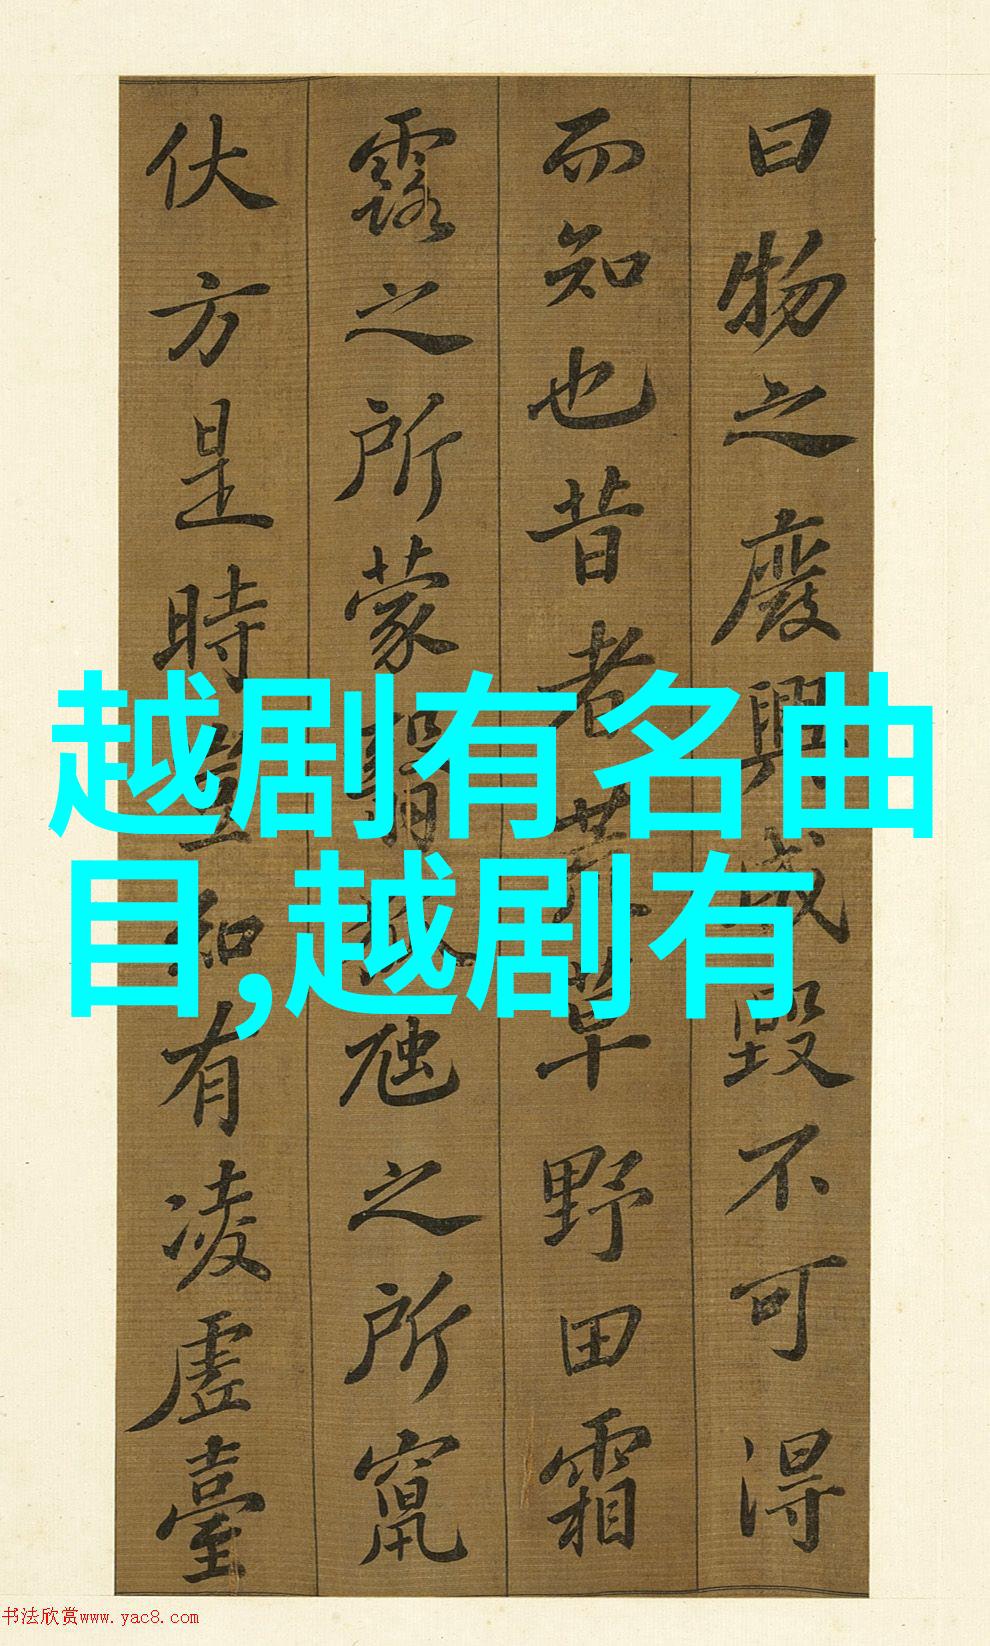 曰物之廢興成毀不可得
而知也昔者荒草野田霜
露之所蒙翳狐虺之所竄
伏方是時豈知有凌虛臺
越剧有名曲
目,越剧有
书法欣赏www.yac8.com